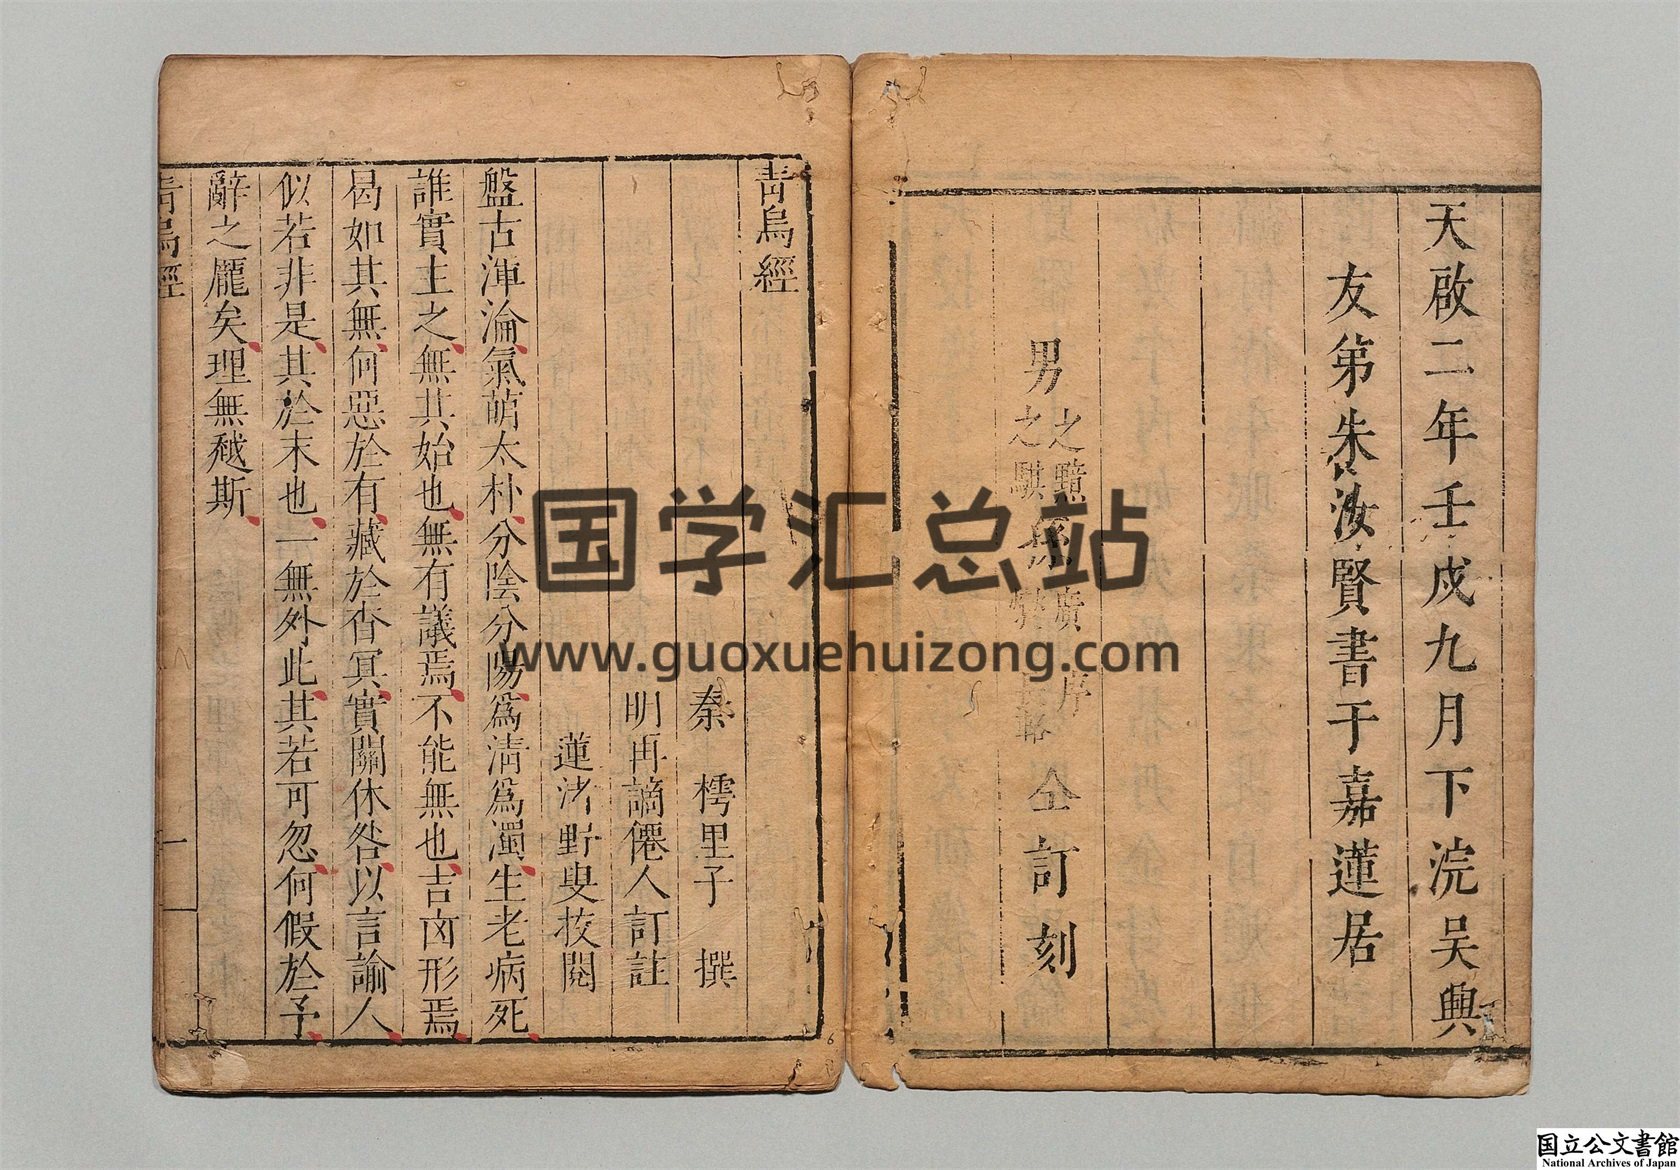 天啟二年壬戌九月下浣吴興
友弟朱汝賢書于嘉蓮居
男 之 之騏 孫 廣 序 仝訂刻
青烏經
秦 樗里子 撰
明再謫僊人訂註
蓮渚野叟挍閱
盤古渾淪氣萌太朴分陰分陽爲清爲濁生老病死
誰實主之無其始也無有議焉不能無也吉凶形焉
曷如其無何惡於有藏於杳冥實關休咎以言諭人
似若非是其於末也一無外此其若可忽何假於予
辭之龐矣理無越斯
青烏經
一
国学汇总站
www.guoxuehuizong.com
国立公文書館
National Archives of Japan
6